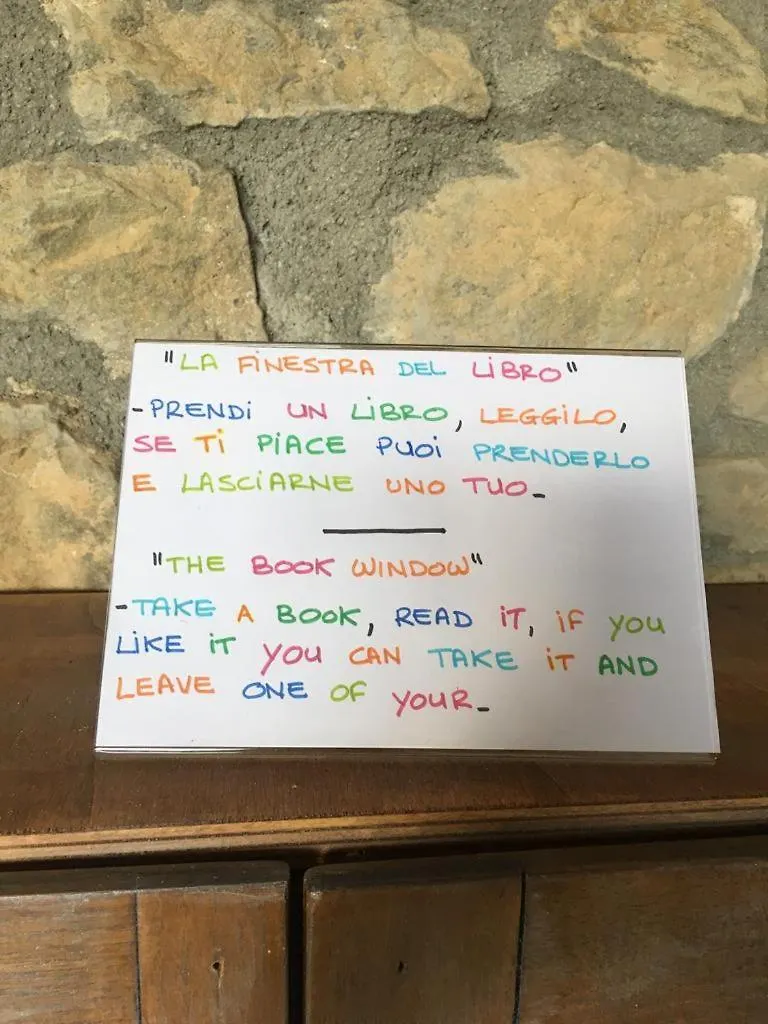 "LA FiNESTRA DEL LiBRO"
-PRENDi UN LiBRO, LEGGiLO,
SE Ti PiACE PUOi PRENDERLO
E LASCiARNE UNO TUO_
"THE BOOK WiNDOW"
-TAKE A BOOK, READ iT, iF YOU
LiKE iT YOU CAN TAKE iT AND
LEAVE ONE OF YOUR_